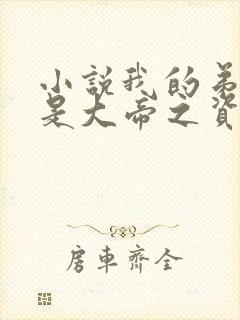 小說我的弟
是大帝之資
房車齊全